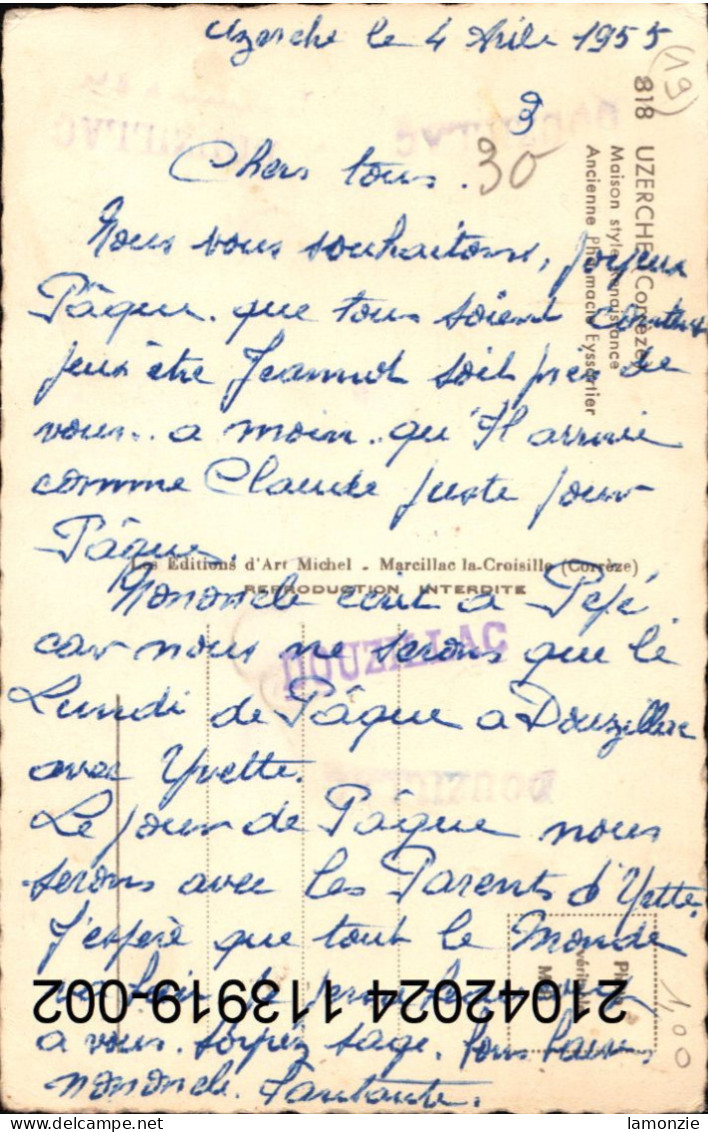 Uzerche le 4 Avril 1955
(19)
3
30
818 UZERCHE (Corrèze)
Maison style Renaissance
Ancienne Pharmacie Eyssartier
Chers tous.
Nous vous souhaitons, joyeux
Pâque. que tous soient contents
peux être Jeannot soit près de
vous.. a moin. qu'Il arrive
comme Claude juste pour
Pâque.
Les Editions d'Art Michel - Marcillac la-Croisille (Corrèze)
REPRODUCTION INTERDITE
Nononcle écrit a Pépé
car nous ne serons que le
DOUZILLAC
Lundi de Pâque a Douzillac
avec Yvette.
DOUZILLAC
Le jour de Pâque nous
serons avec les Parents d'Yvette.
J'espère que tout le Monde
va bien je
21042024 113919-002
1,00
a vous. soyez sage.
nononcle. Tantante.
lamonzie